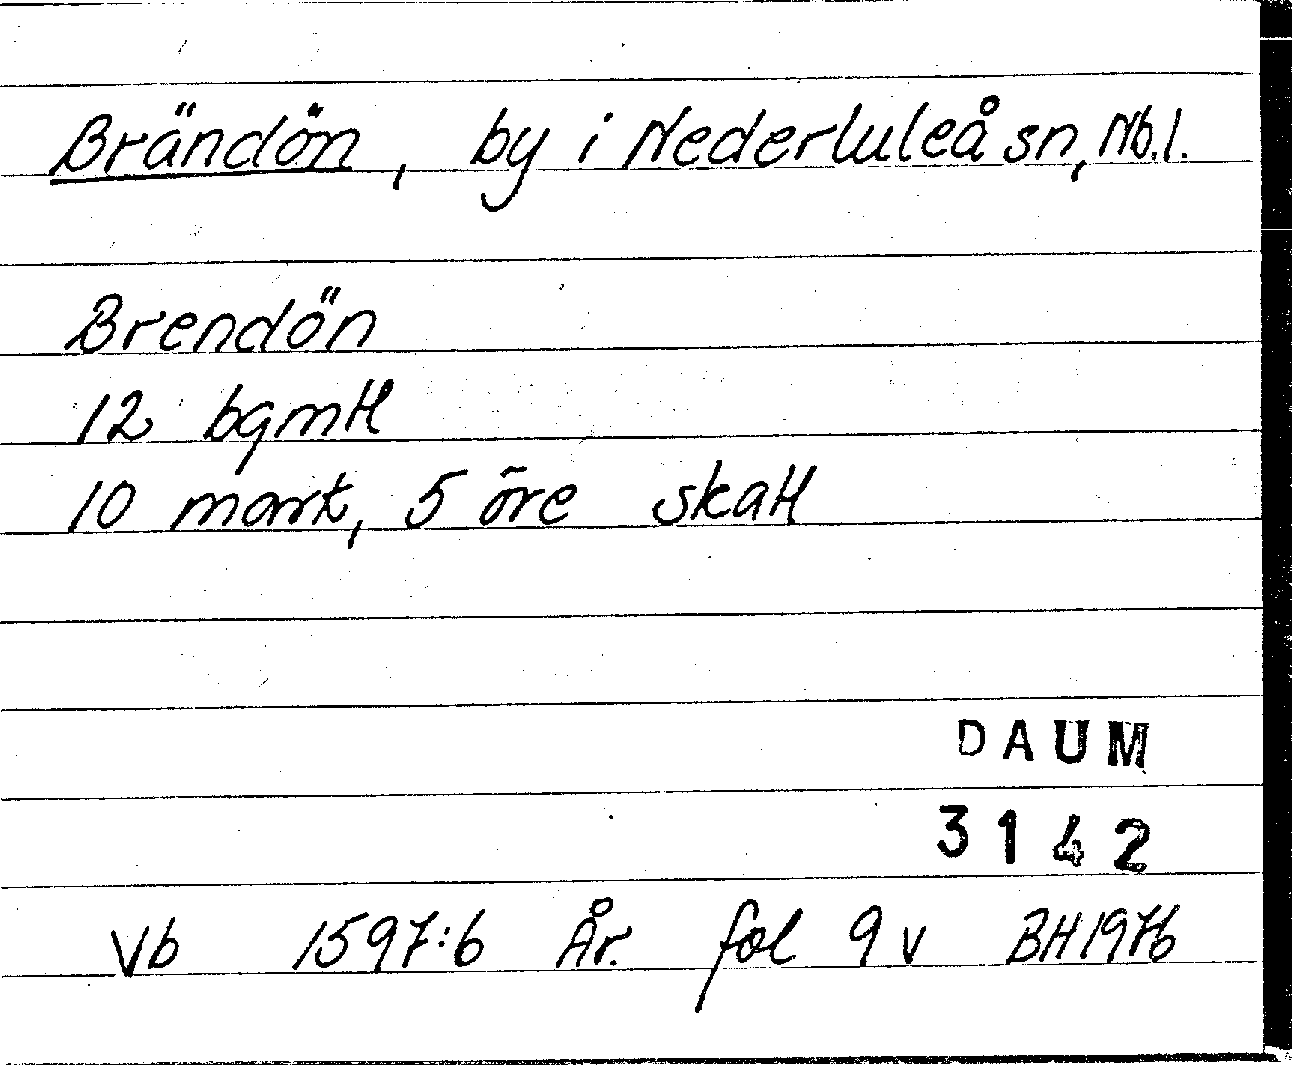 Brändön, by i Nederluleå sn, Nb.l.
Brendön
12 bgmtl
10 mark, 5 öre skatt
DAUM
3142
Vb 1597:6 År. fol 9 v BH 1976